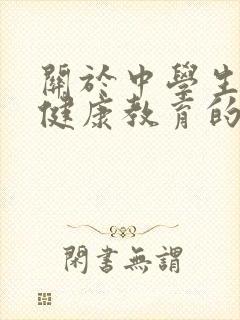 關於中學生
健康教育的
閑書無謂